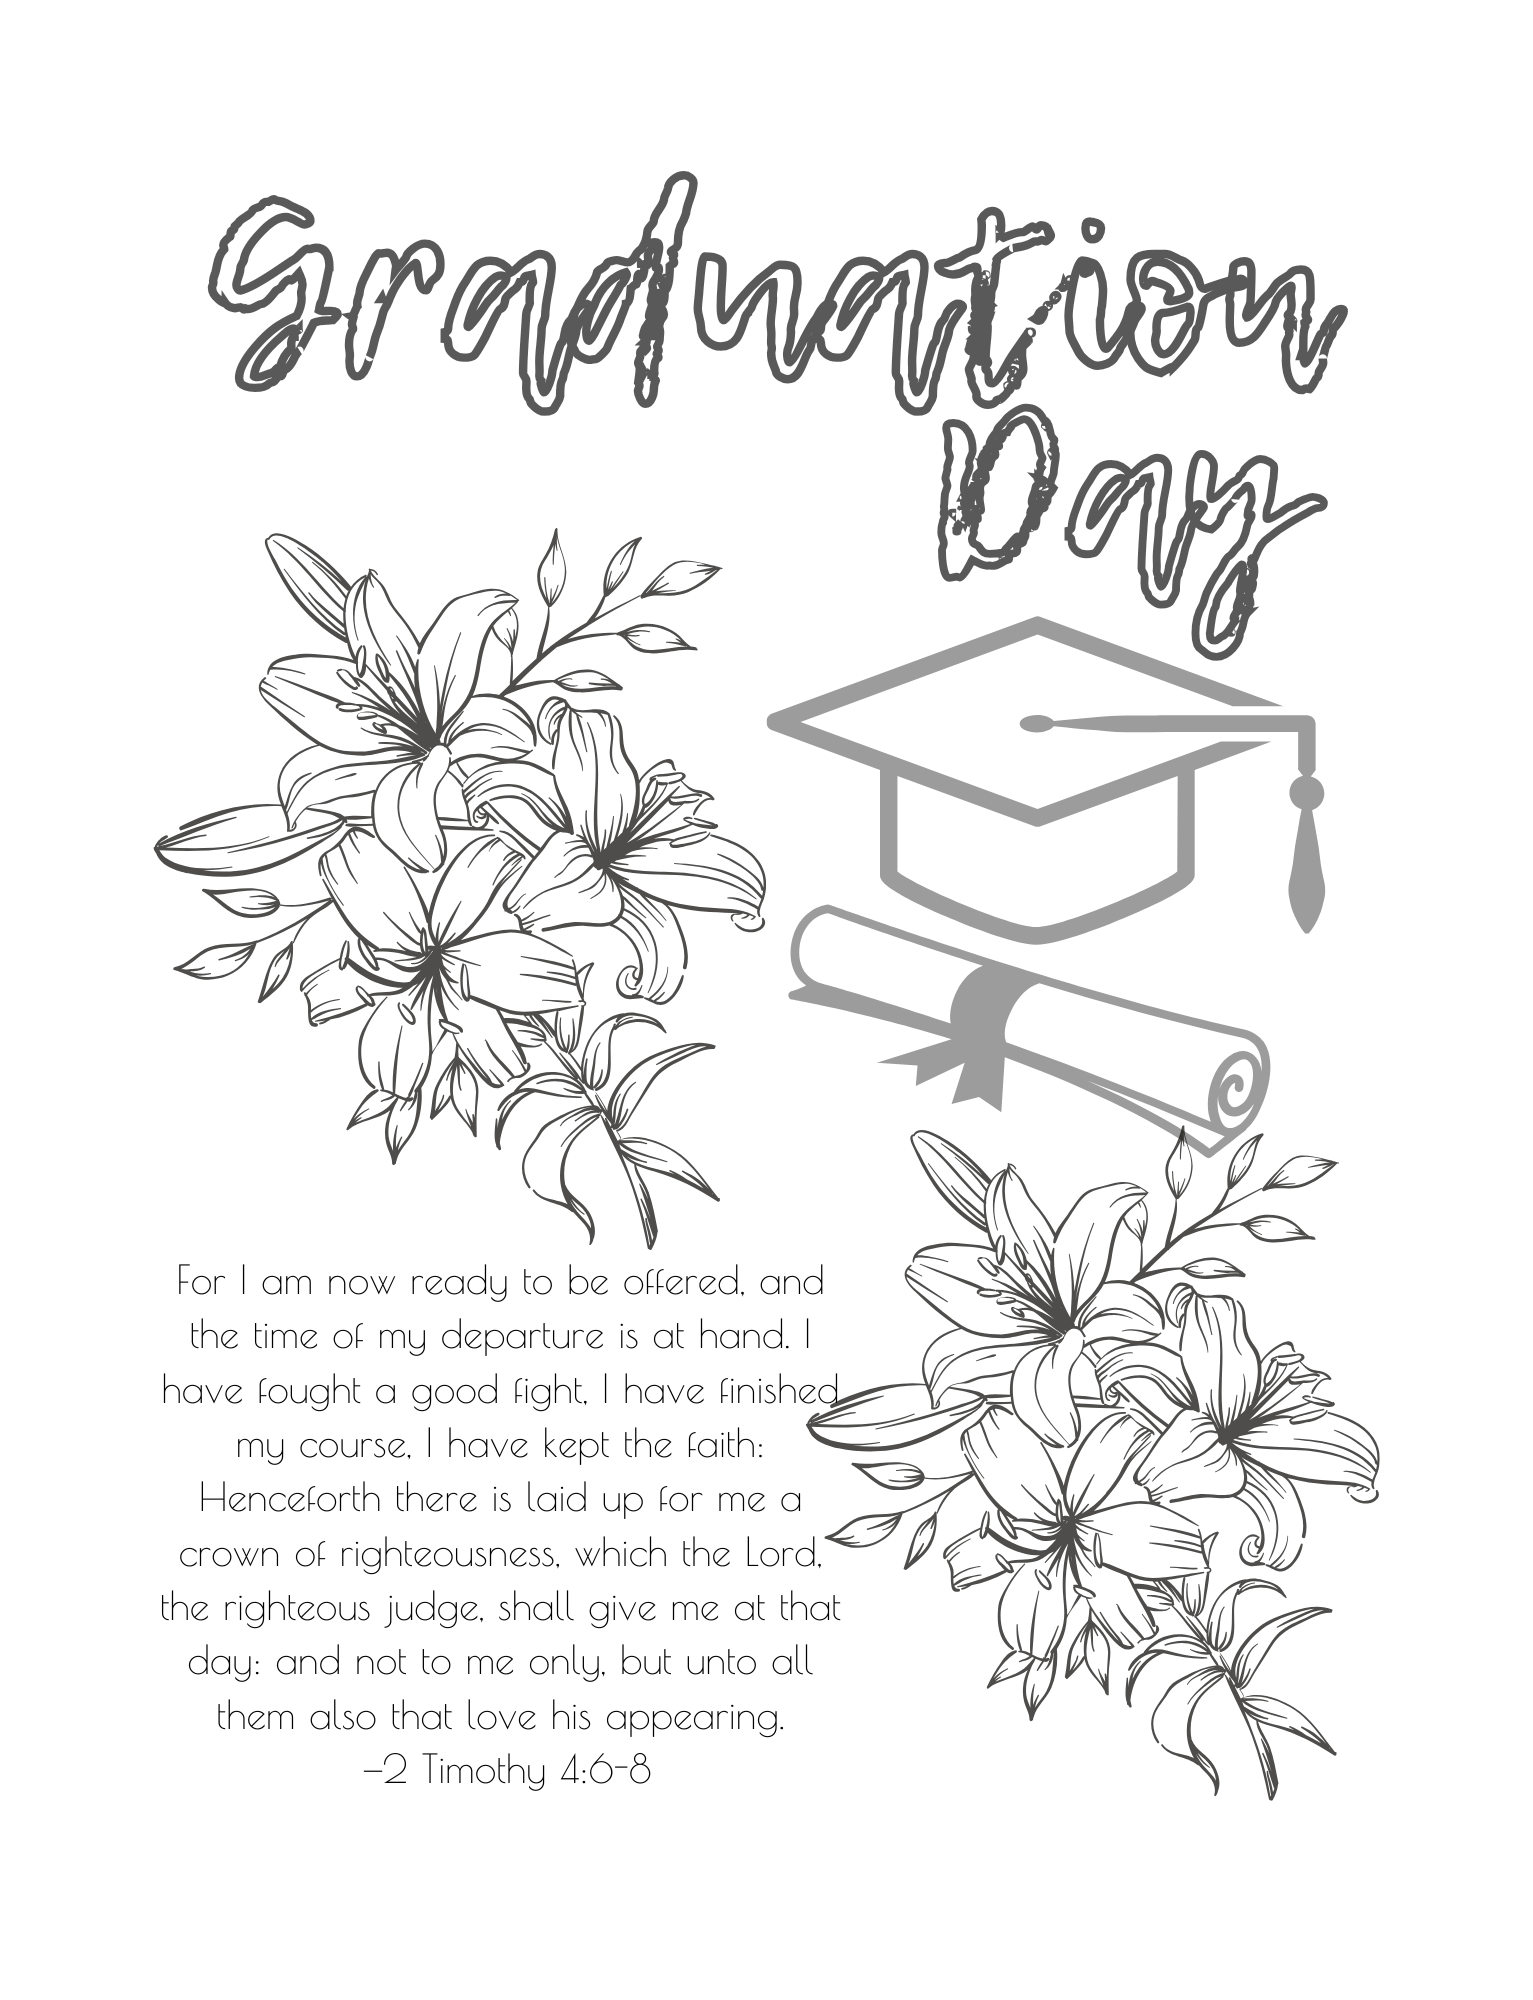 Graduation
Day
For I am now ready to be offered, and
the time of my departure is at hand. I
have fought a good fight, I have finished
my course, I have kept the faith:
Henceforth there is laid up for me a
crown of righteousness, which the Lord,
the righteous judge, shall give me at that
day: and not to me only, but unto all
them also that love his appearing.
–2 Timothy 4:6-8